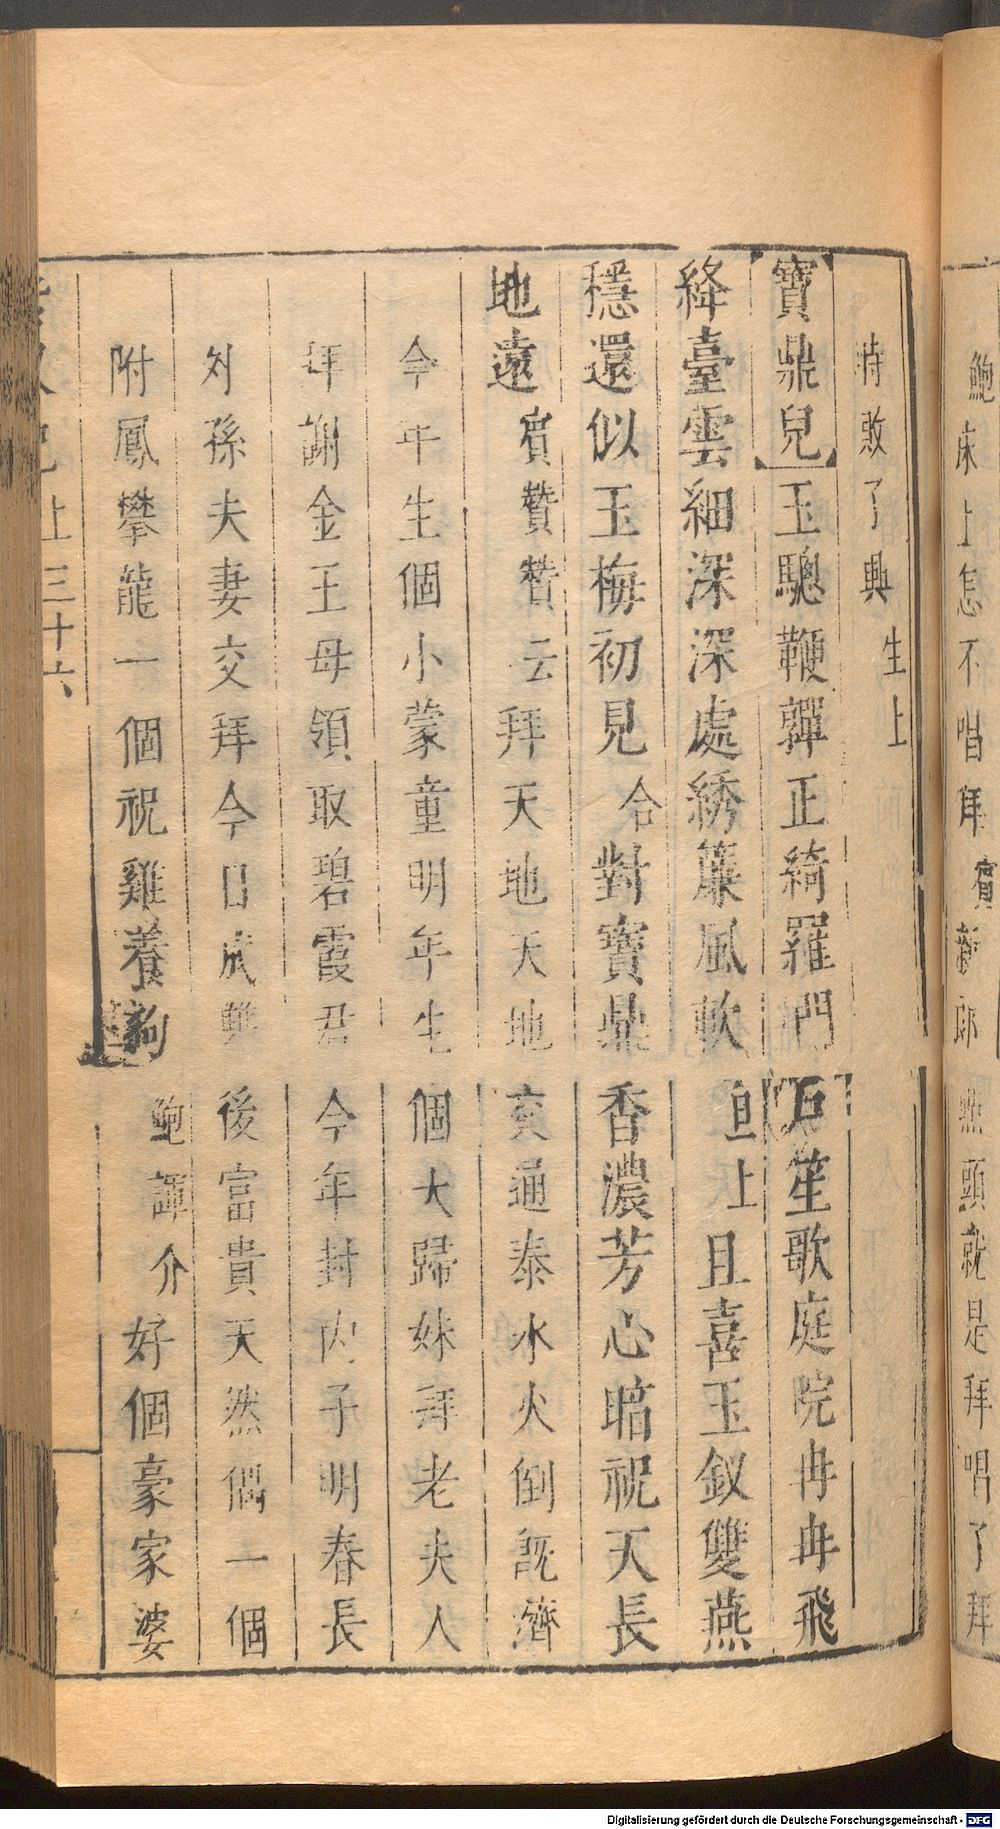 鮑
床上怎不唱拜賓新郎點頭就是拜唱了拜
敗了興生上
寶鼎兒玉驄鞭軃正綺羅門戶笙歌庭院冉冉飛
絳臺雲細深深處綉簾風軟旦上且喜玉釵雙燕
穩還似玉梅初見合對寶鼎香濃芳心暗祝天長
地遠賓贊贊云拜天地天地亥通泰水火倒既濟
今年生個小蒙童明年生個大歸妹拜老夫人
拜謝金王母領取碧霞君今年封內子明春長
外孫夫妻交拜今日成雙後富貴天然偶一個
附鳳攀龍一個祝雞養狗鮑諢介好個豪家婆
上三十六
Digitalisierung gefördert durch die Deutsche Forschungsgemeinschaft - DFG